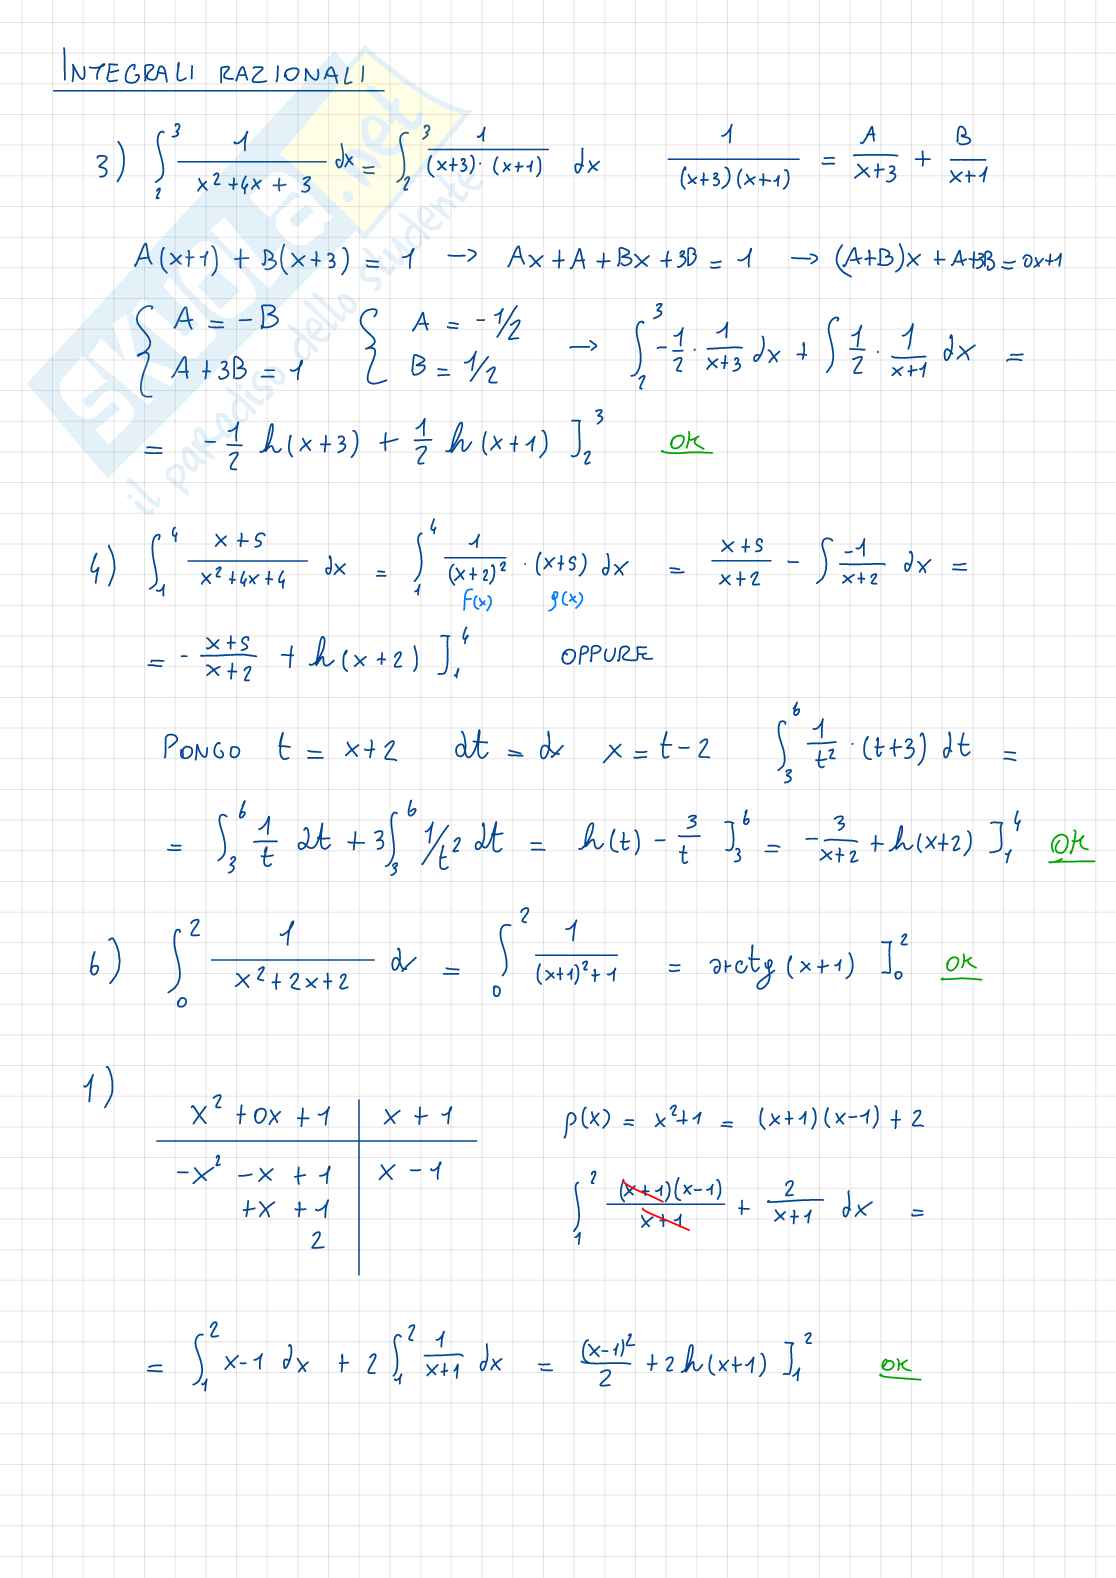 INTEGRALI RAZIONALI
3) ∫₂³ 1/(x²+4x+3) dx = ∫₂³ 1/((x+3)·(x+1)) dx    1/((x+3)(x+1)) = A/(x+3) + B/(x+1)
A(x+1) + B(x+3) = 1 → Ax+A+Bx+3B = 1 → (A+B)x + A+3B = 0x+1
{ A = -B ; A+3B = 1    { A = -1/2 ; B = 1/2 → ∫₂³ -1/2 · 1/(x+3) dx + ∫ 1/2 · 1/(x+1) dx =
= -1/2 ln(x+3) + 1/2 ln(x+1) ]₂³    OK
4) ∫₁⁴ (x+5)/(x²+4x+4) dx = ∫₁⁴ 1/(x+2)² · (x+5) dx = (x+5)/(x+2) - ∫ -1/(x+2) dx =
f(x)    g(x)
= - (x+5)/(x+2) + ln(x+2) ]₁⁴    OPPURE
PONGO t = x+2    dt = dx    x = t-2    ∫₃⁶ 1/t² · (t+3) dt =
= ∫₃⁶ 1/t dt + 3∫₃⁶ 1/t² dt = ln(t) - 3/t ]₃⁶ = - 3/(x+2) + ln(x+2) ]₁⁴    OK
6) ∫₀² 1/(x²+2x+2) dx = ∫₀² 1/((x+1)²+1) = arctg(x+1) ]₀²    OK
1)
x²+0x+1 | x+1    p(x) = x²+1 = (x+1)(x-1)+2
-x² -x +1 | x-1
+x +1    ∫₁² (x+1)(x-1)/(x+1) + 2/(x+1) dx =
2
= ∫₁² x-1 dx + 2∫₁² 1/(x+1) dx = (x-1)²/2 + 2 ln(x+1) ]₁²    OK
skuola.net
il paradiso dello studente